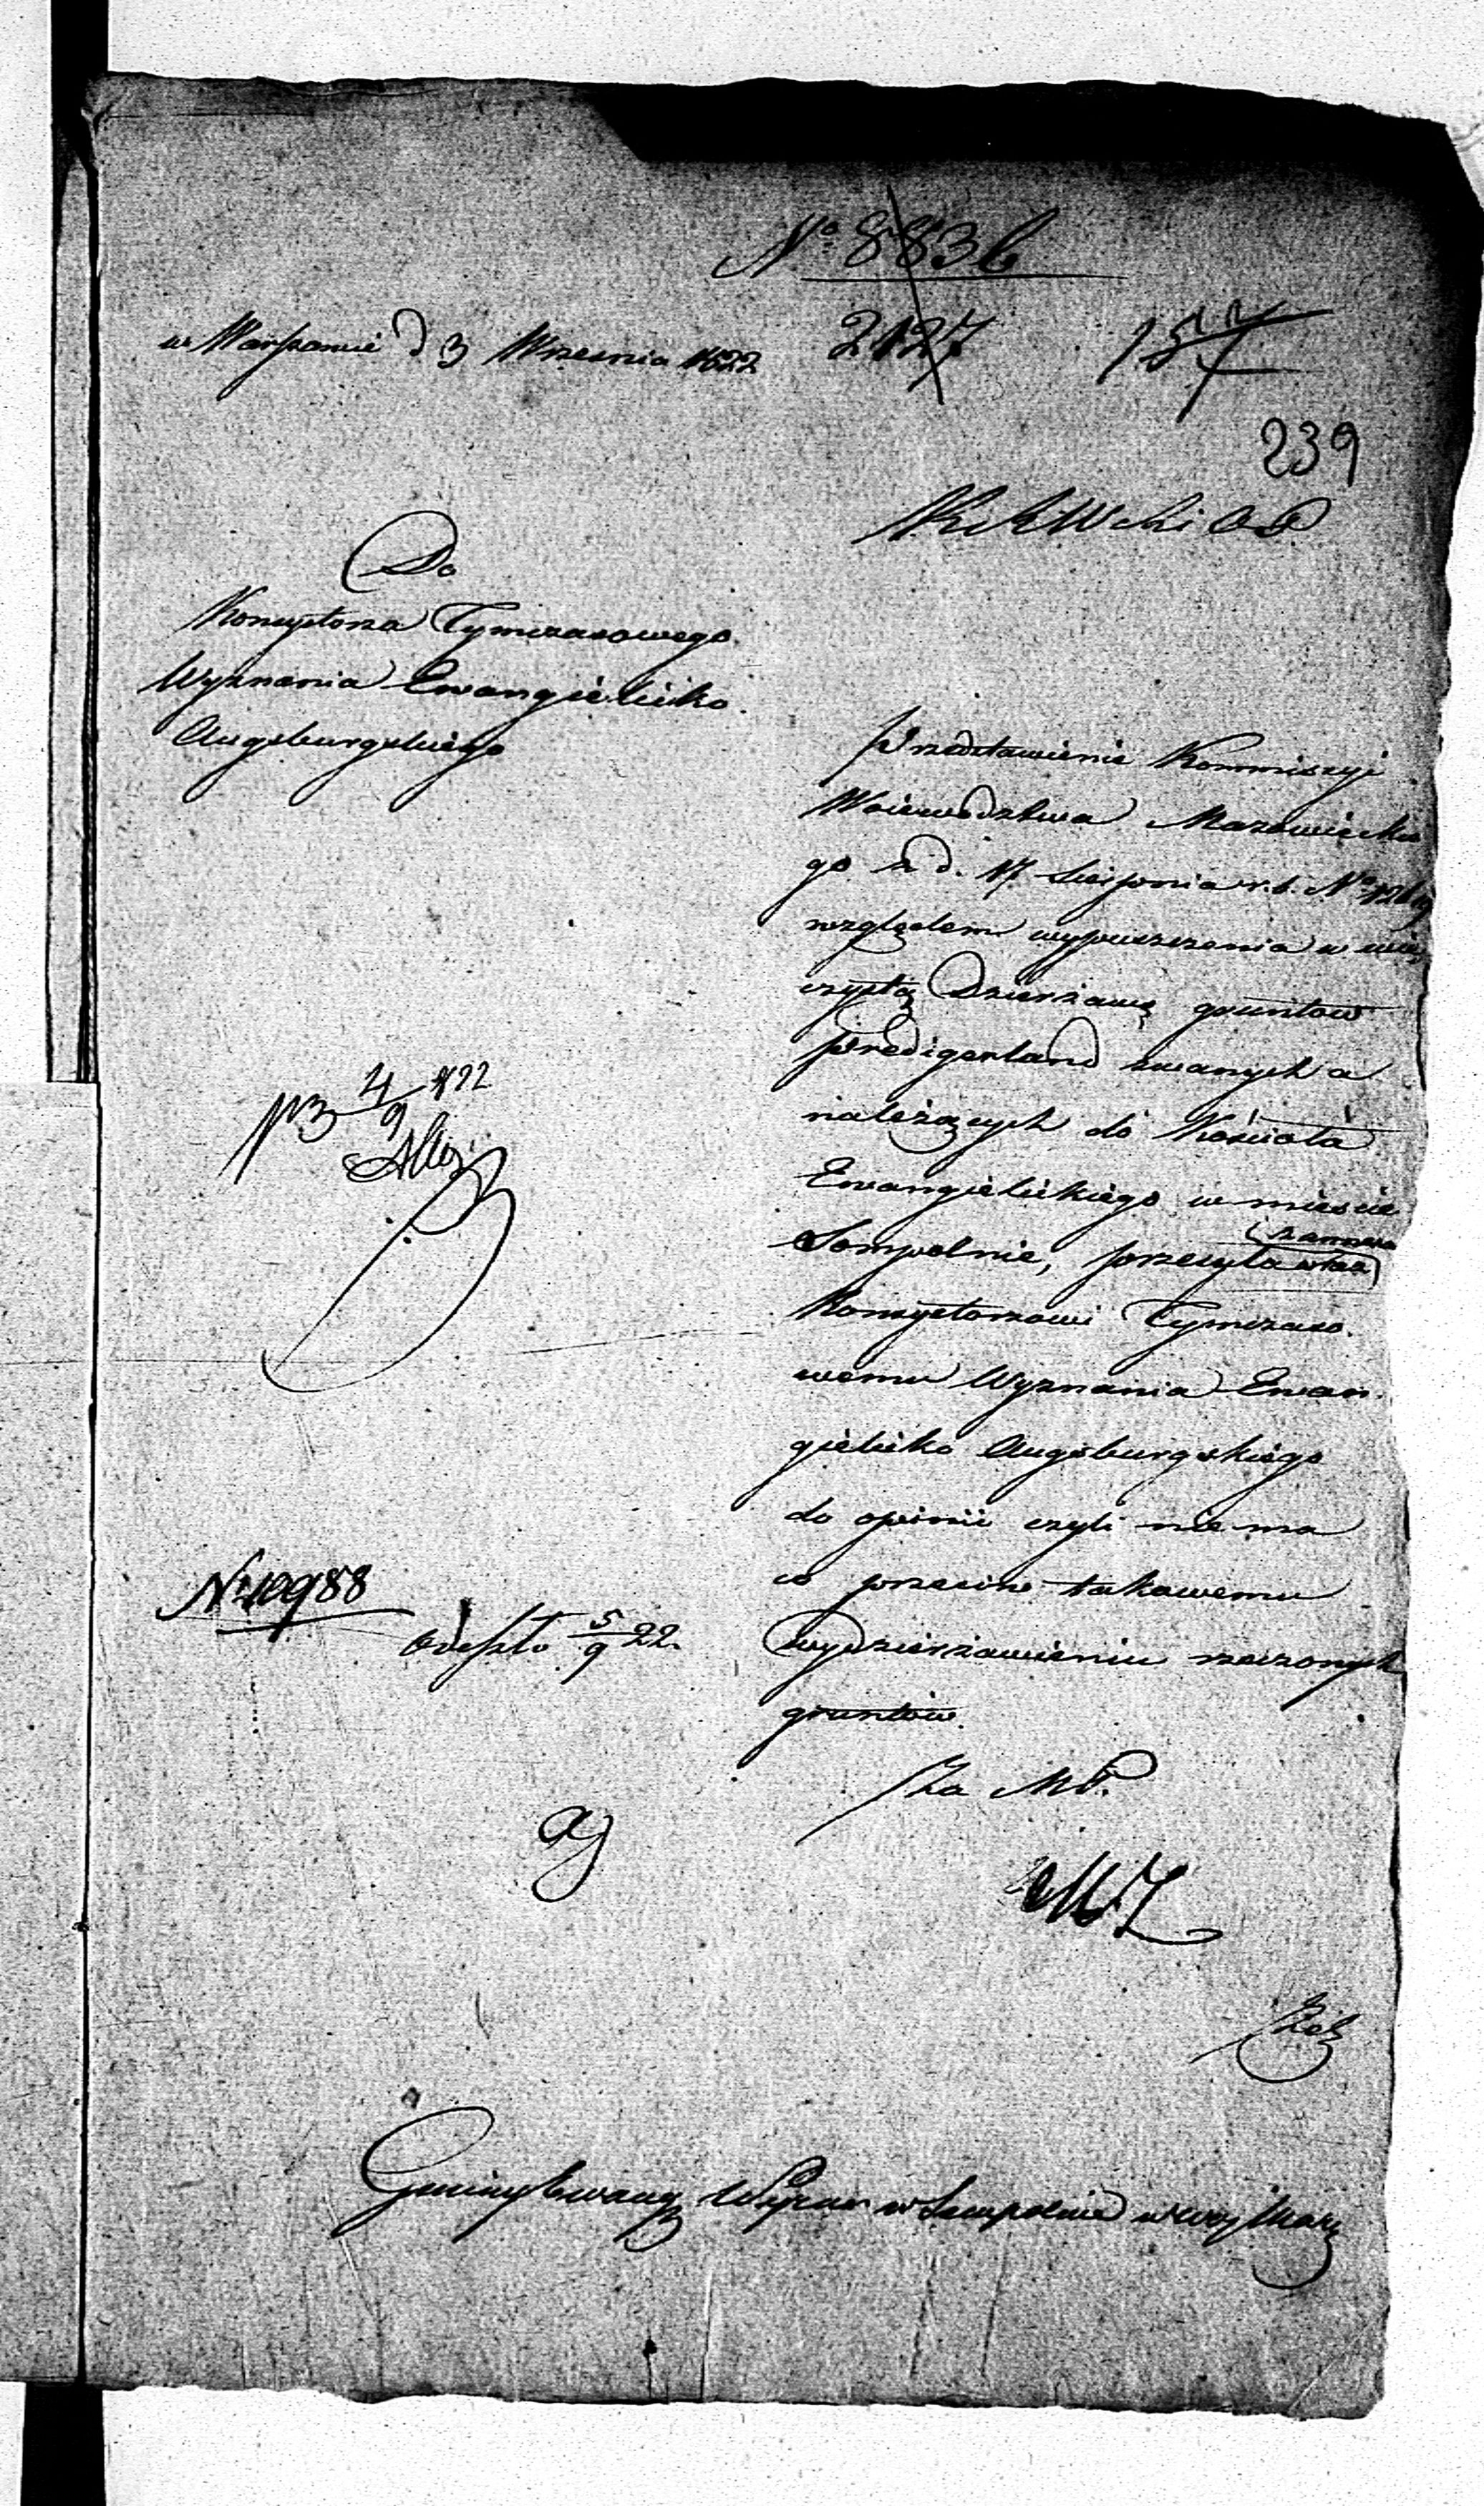 No 8836
w Warszawie d 3 Wrzesnia 1822
2127
157
239
Do
Konsystorza Tymczasowego
Wyznania Ewangielicko
Augsburgskiego
Przedstawienie Kommissyi
Woiewodztwa Mazowieckie
go z d. 17 Sierpnia r.b. No
względem wypuszczenia w wie
czystą Dzierżawę gruntow
Predigerland zwanych a
należących do Kościoła
Ewangielickiego w mieście
Sompolnie, przesyła wraz
Konsystorzowi Tymczaso
wemu Wyznania Ewan
gielicko Augsburgskiego
do opinii czyli nie ma
co przeciw takowemu
wydzierżawieniu rzeczonych
gruntów.
4/9 822
N 10988
odeszło 5/9 22.
Za MP.
Gminy Ewang Wyzna w Sompolnie w Woj Maz